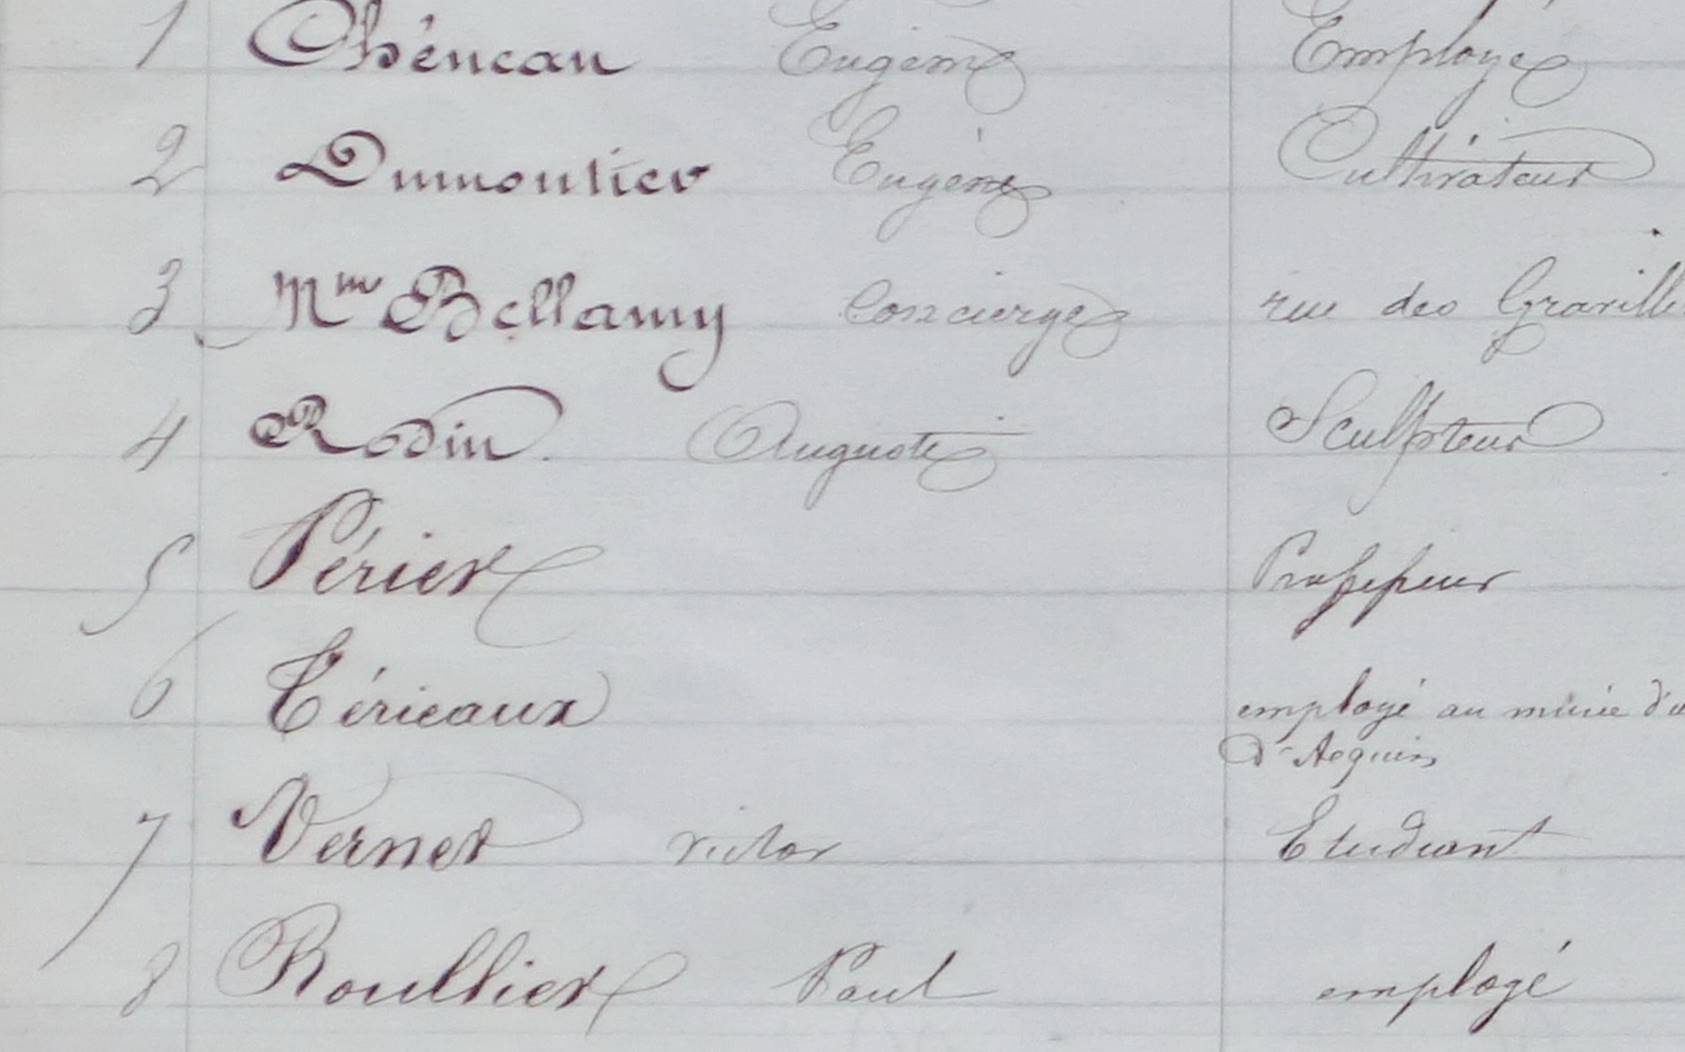 1 Chéneau Eugène Employé
2 Dumoutier Eugène Cultivateur
3 Mme Bellamy Concierge rue des Gravilliers
4 Rodin Auguste Sculpteur
5 Périer Professeur
6 Téricaux employé au musée
d'Aeguin
7 Vernet victor Etudiant
8 Roullier Paul employé